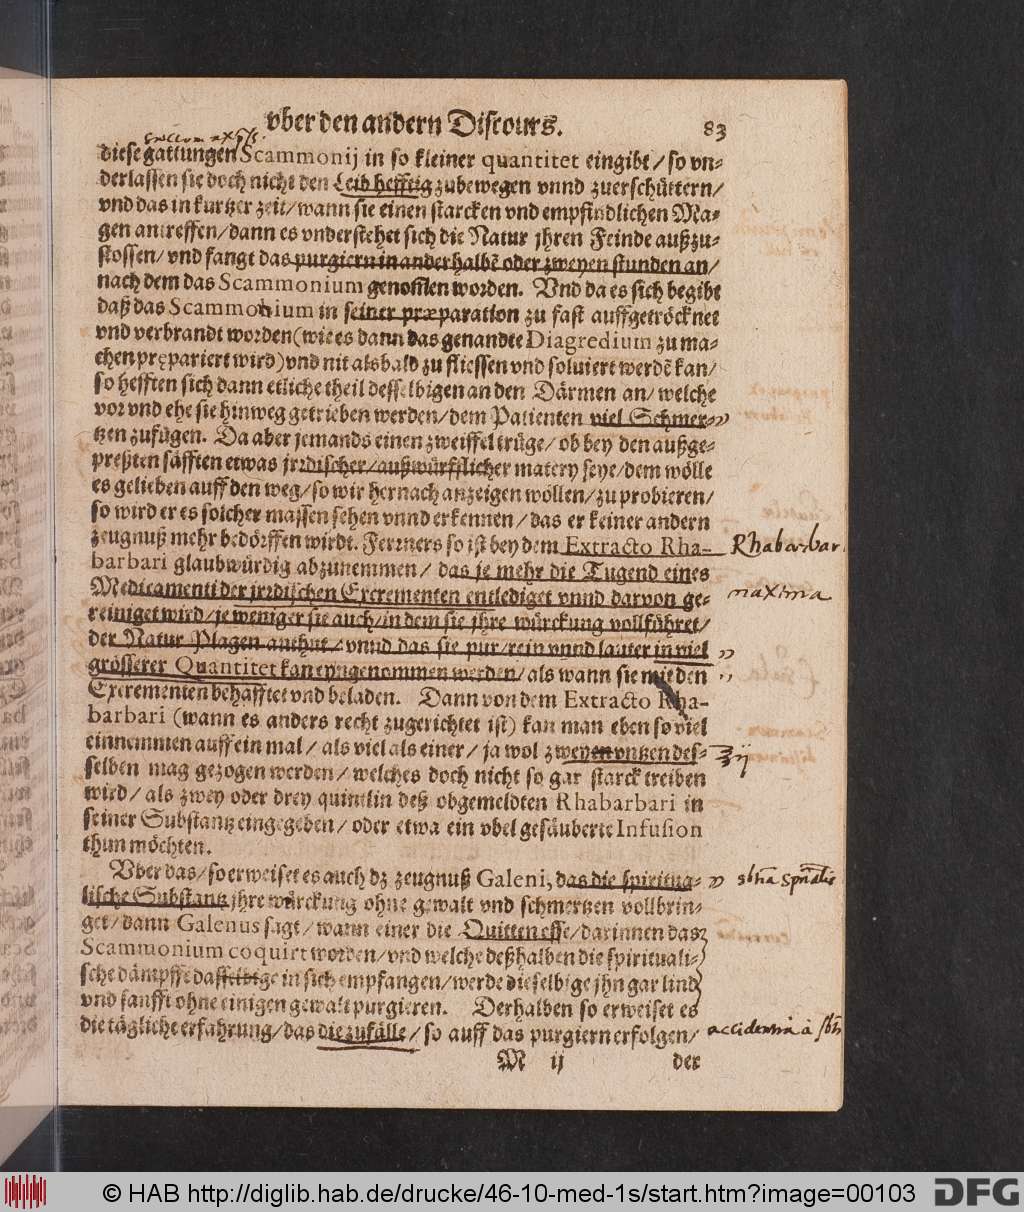 vber den andern Discours.
83
diese gattungen Scammonij in so kleiner quantitet eingibt/ so vn-
derlassen sie doch nicht den Leib hefftig zubewegen vnnd zuerschüttern/
vnd das in kurtzer zeit/ wann sie einen starcken vnd empfindlichen Ma-
gen antreffen/ dann es vnderstehet sich die Natur jhren Feinde außzu-
stossen/ vnd fangt das purgiern in anderhalbē oder zweyen stunden an/
nach dem das Scammonium genossen worden. Vnd da es sich begibt
daß das Scammonium in seiner præparation zu fast auffgetröcknet
vnd verbrandt worden (wie es dann das genandte Diagredium zu ma-
chen prępariert wird) vnd nit alsbald zu fliessen vnd soluiert werdē kan/
so hefften sich dann etliche theil desselbigen an den Därmen an/ welche
vor vnd ehe sie hinweg getrieben werden/ dem Patienten viel Schmer-
tzen zufügen. Da aber jemands einen zweiffel trüge/ ob bey den außge-
preßten säfften etwas jrzdischer/ außwürfflicher matery seye/ dem wölle
es gelieben auff den weg/ so wir hernach anzeigen wöllen/ zu probieren/
so wird er es solcher massen sehen vnnd erkennen/ das er keiner andern
zeugnuß mehr bedörffen wirdt. Ferrners so ist bey dem Extracto Rha-
Rhabarbar
barbari glaubwürdig abzunemmen/ das je mehr die Tugend eines
Medicamenti der jrzdischen Excrementen entlediget vnnd darvon ge-
maxima
reiniget wird/ je weniger sie auch/ in dem sie jhre würckung vollführet/
der Natur Plagen anthut/ vnnd das sie pur/ rein vnnd lauter in viel
grösserer Quantitet kan eyngenommen werden/ als wann sie mit den
Excrementen behafftet vnd beladen. Dann von dem Extracto Rha-
barbari (wann es anders recht zugerichtet ist) kan man eben so viel
einnemmen auff ein mal/ als viel als einer/ ja wol zweyen vntzen des-
℥ij
selben mag gezogen werden/ welches doch nicht so gar starck treiben
wird/ als zwey oder drey quintlin deß obgemeldten Rhabarbari in
seiner Substantz eingegeben/ oder etwa ein vbel gesäuberte Infusion
thun möchten.
Vber das/ so erweiset es auch dz zeugnuß Galeni, das die spiritua-
lische Substantz jhre würckung ohne gewalt vnd schmertzen vollbrin-
get/ dann Galenus sagt/ wann einer die Quitten esse/ darinnen das
Scammonium coquirt worden/ vnd welche deßhalben die spirituali-
sche dämpffe dasselbige in sich empfangen/ werde dieselbige jhn gar lind
vnd sanfft ohne einigen gewalt purgieren. Derhalben so erweiset es
die tägliche erfahrung/ das die zufälle/ so auff das purgiern erfolgen/
M ij
der
© HAB http://diglib.hab.de/drucke/46-10-med-1s/start.htm?image=00103
DFG